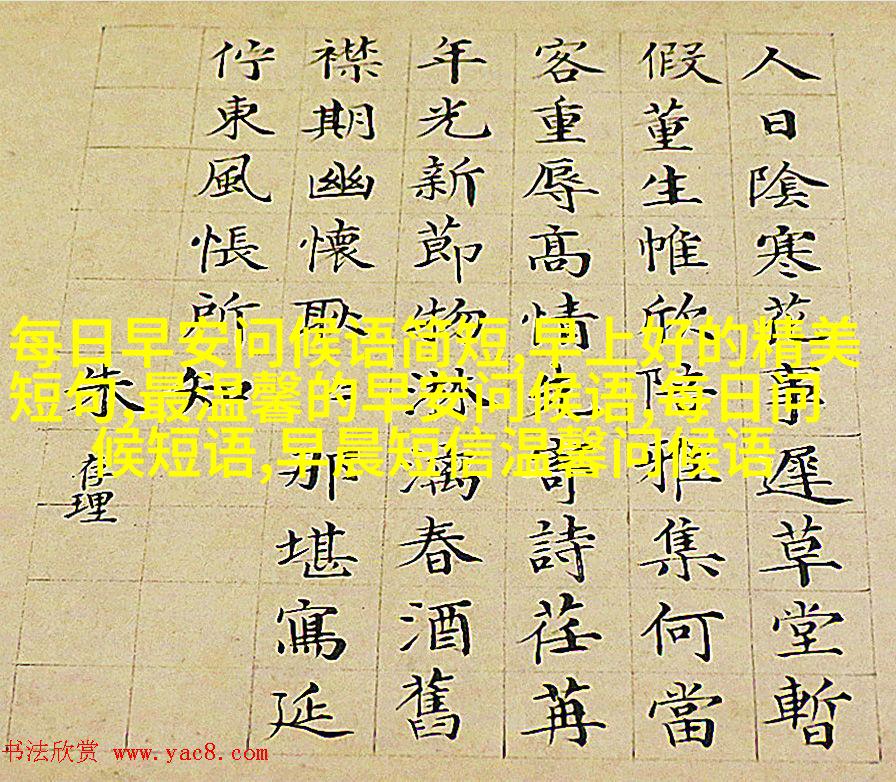 人日陰寒花事遲草堂暫
假董生帷欣陪雅集何當
客重辱高情先寄詩荏苒
年光新節物淋漓春酒舊
襟期幽懷耿那堪寫延
佇東風悵所知
朱存理
每日早安问候语简短,早上好的精美
短句,最温馨的早安问候语,每日问
候短语,早晨短信温馨问候语
书法欣赏 www.yac8.com